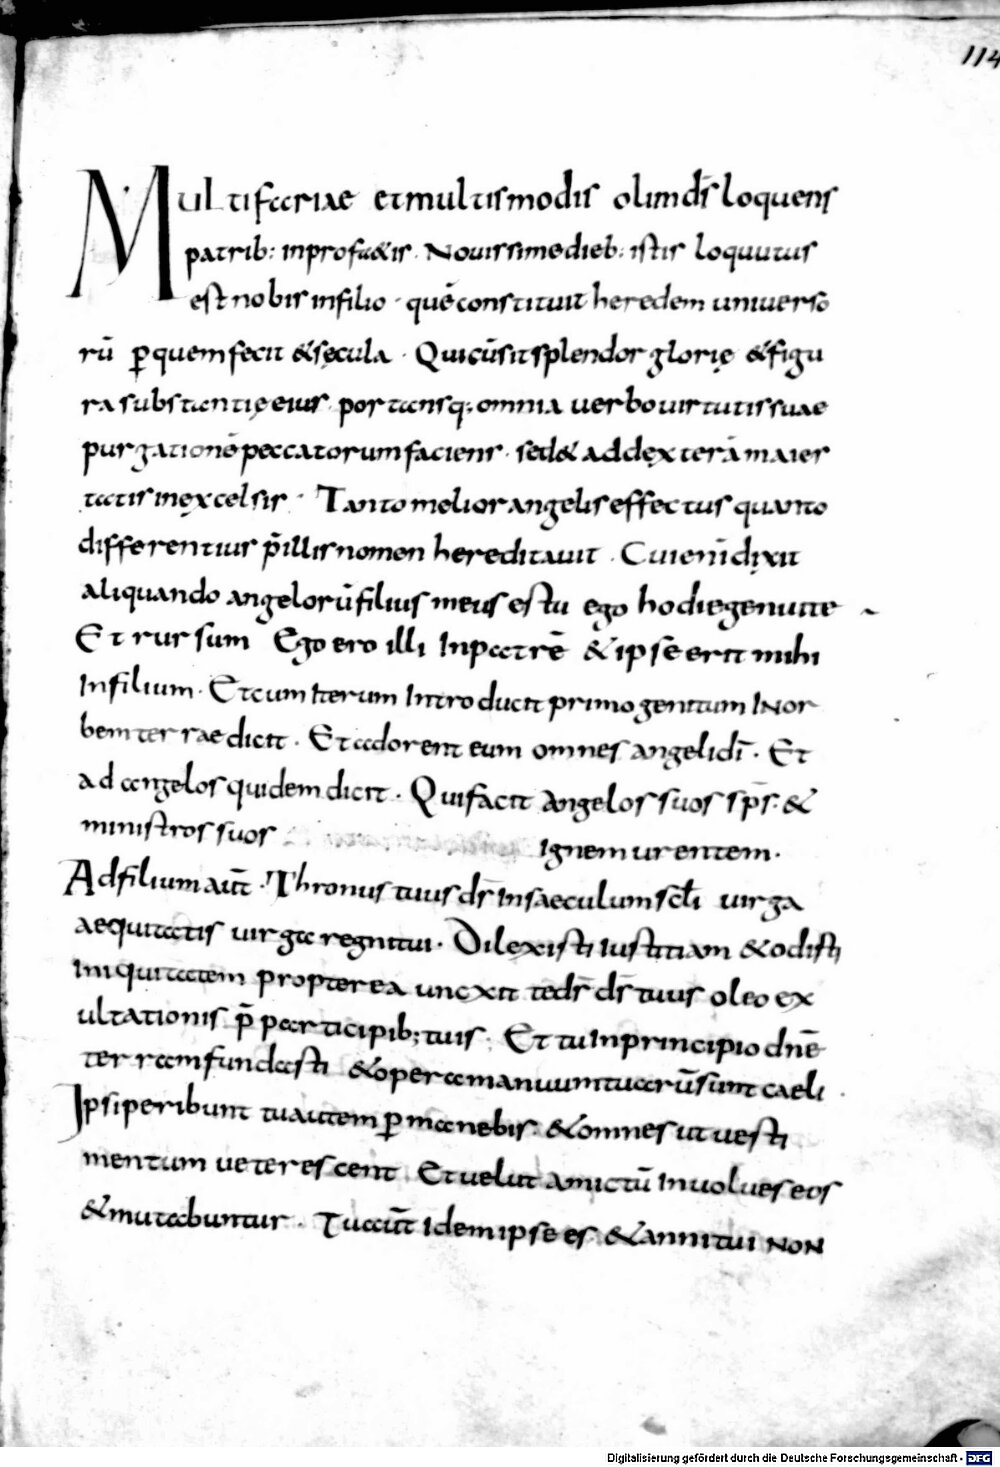 114
Multifariae et multis modis olim ds̄ loquens
patrib: in profu&is. Nouissime dieb: istis loquutus
est nobis in filio · quē constituit heredem uniuerso
rū ꝑ quem fecit & sęcula · Qui cū sit splendor glorię & figu
ra substantię eius portansq; omnia uerbo uirtutis suae
purgationē peccatorum faciens · sed& ad dęxterā maies
tatis in ęxcelsis · Tanto melior angelis effectus quanto
differentius p̄ illis nomen hereditauit · Cui enī dixit
aliquando angelorū filius meus es tu ego hodie genui te
Et rursum Ego ero illi In patrē & ipse erit mihi
In filium · Et cum Iterum Introducit primogenitum IN or
bem terrae dicit · Et adorent eum omnes angeli dī · Et
ad angelos quidem dicit · Qui facit Angelos suos sp̄s · &
ministros suos Ignem urentem ·
Ad filium aūt · Thronus tuus ds̄ In saeculum sc̄li uirga
aequitatis uirga regni tui · Dilexisti Iustitiam & odisti
Iniquitatem propterea uncxit te ds̄ ds̄ tuus oleo ex
ultationis p̄ participib; tuis · Et tu In principio dn̄e
terram fundasti & opera manuum tuarū sunt caeli ·
Ipsi peribunt tu autem ꝑmanebis · & omnes ut uesti
mentum ueterescent Et uelut amictū Inuolues eos
& mutabuntur · Tu aūt Idem ipse es & anni tui NON
Digitalisierung gefördert durch die Deutsche Forschungsgemeinschaft - DFG